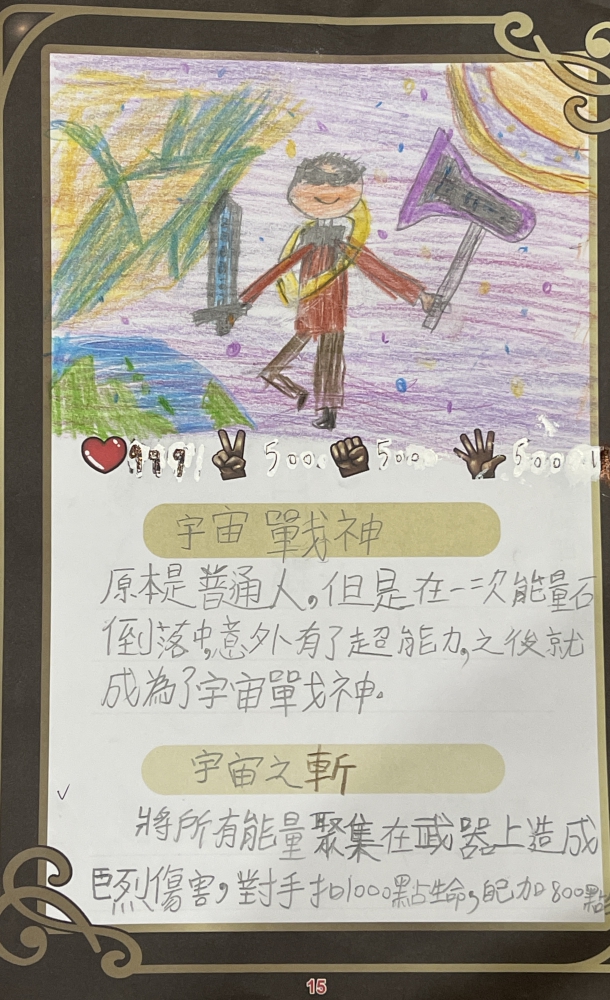 999 500 500 500
宇宙戰神
原本是普通人,但是在一次能量石
倒落中,意外有了超能力,之後就
成為了宇宙戰神。
宇宙之斬
將所有能量聚集在武器上造成
巨烈傷害,對手扣1000點生命,自己加800點
15